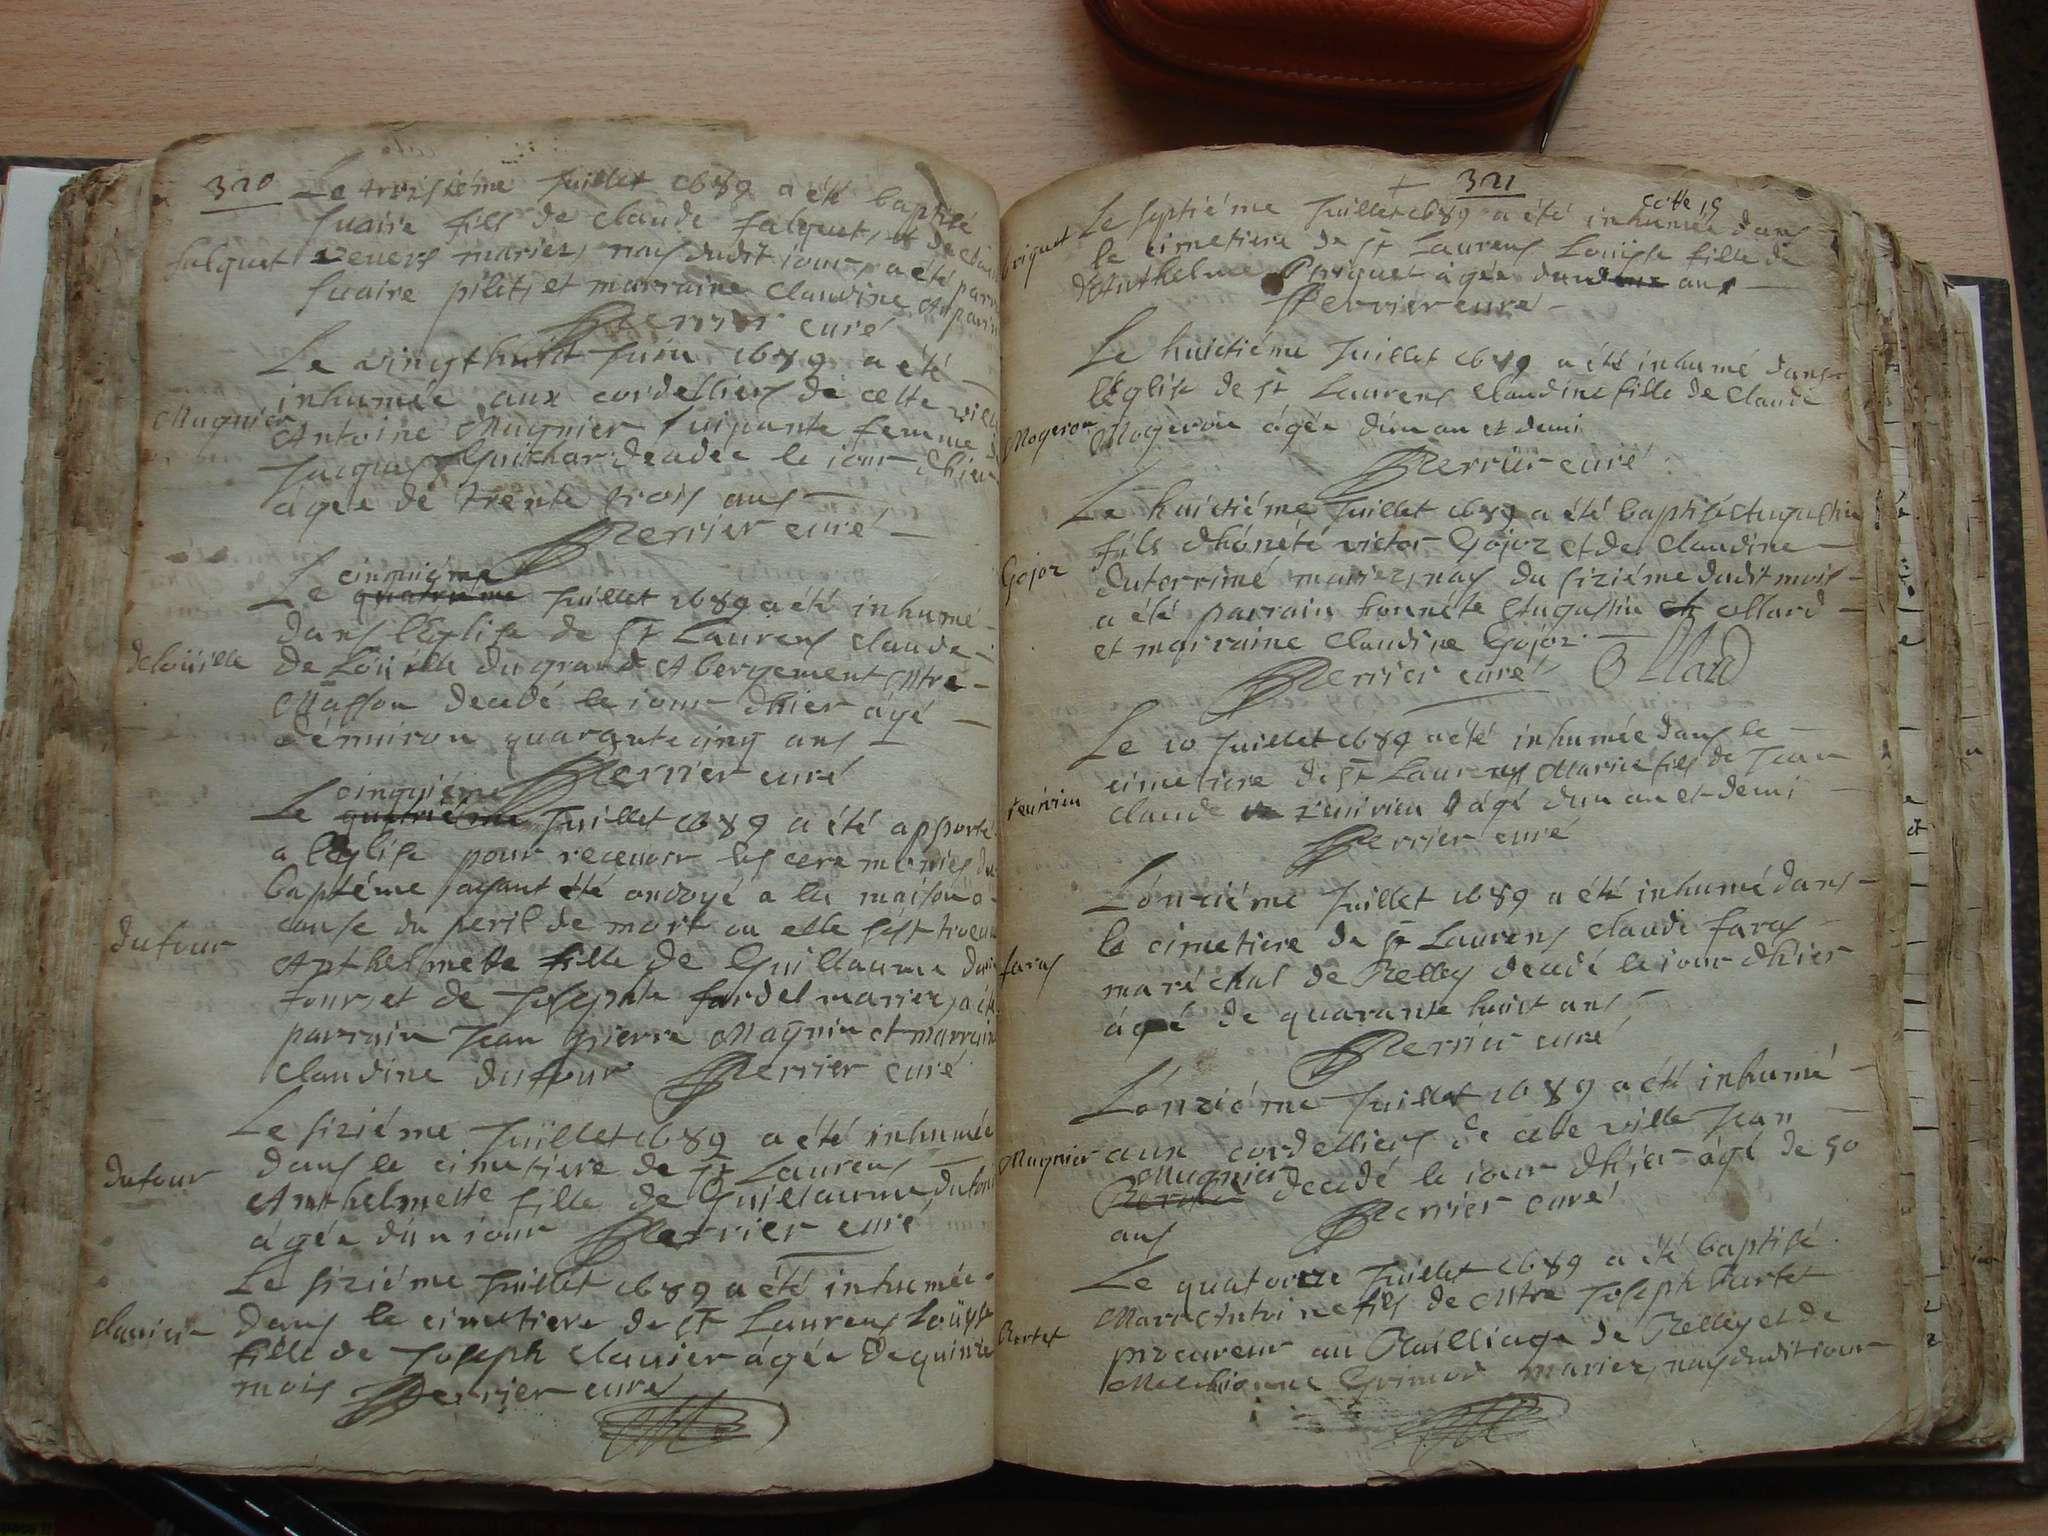 320
Le troisiéme Juillet 1689 a été baptisé
Suaire fils de Claude falquet, et de
falquet
Veuers mariez, nay dudit iour, a été
Suaire pilit, et marraine Claudine
Perrier curé
Le vingthuict Juin 1689 a été
inhumée aux cordelliers de cette ville
Mugnier
Antoine Mugnier suipante femme
Jacques Guichar decadée le iour dhier
agée de trente trois ans
Perrier curé
cinquiéme
Le quatriéme Juillet 1689 a été inhumé
dans l'Eglise de St Laurens Claude
deloüille
De Loüille du grand Abergement Mtre
Masson decedé le iour dhier agé
dénuiron quarante cinq ans
Perrier curé
cinquiéme
Le quatriéme Juillet 1689 a été apporté
a l'eglise pour receuoir les ceremonies du
baptéme ayant été ondoyé a la maison a
cause du peril de mort ou elle s'est trouuée
dufour
Anthelmette fille de Guillaume du
four, et de Josephte fardel mariez, a été
parrain Jean pierre Magnin et marraine
Claudine dufour Perrier curé
Le siziéme Juillet 1689 a été inhumée
dufour
dans le cimetiere de St Laurens
Anthelmette fille de Guillaume dufour
agée d'un iour Perrier curé
Le siziéme Juillet 1689 a été inhumée
clauier
dans le cimetiere de St Laurens Loüyse
fille de Joseph Clauier agée de quinze
mois Perrier curé
321
cotte 19
Le septiéme Juillet 1689 a été inhumée dans
briquet
le cimetiere de St Laurens Loüise fille de
d'Anthelme Briquet agée ans
Perrier curé
Le huictiéme Juillet 1689 a été inhumé dans
l'Eglise de St Laurens Claudine fille de Claude
Mogeron
Mogeron agée d'un an et demi
Perrier curé
Le huictiéme Juillet 1689 a été baptisé Augustin
fils d'hónété victor Gojoz et de Claudine
Gojoz
Duterrime mariez, nay du siziéme dudit mois
a été parrain honnéte Augustin Ollard
et marraine Claudine Gojoz
Perrier curé Ollard
Le 10 Juillet 1689 a été inhumée dans le
cimetiere de St Laurens Marie fils de Jean
Claude agé d'un an et demi
Perrier curé
L'ónziéme Juillet 1689 a été inhumé dans
le cimetiere de St Laurens Claude faras
faras
maréchal de Belley decedé le iour d'hier
ágé de quarante huict ans
Perrier curé
L'ónziéme Juillet 1689 a été inhumé
aux cordelliers de cette ville Jean
Mugnier
Mugnier
decedé le iour d'hier agé de 50
ans Perrier curé
Le quatorze Juillet 1689 a été baptisé
Marc Antoine fils de Mtre Joseph Bartet
Bartet
procureur au Bailliage de Belley et de
Melchionne Grimod mariez, nay dudit iour